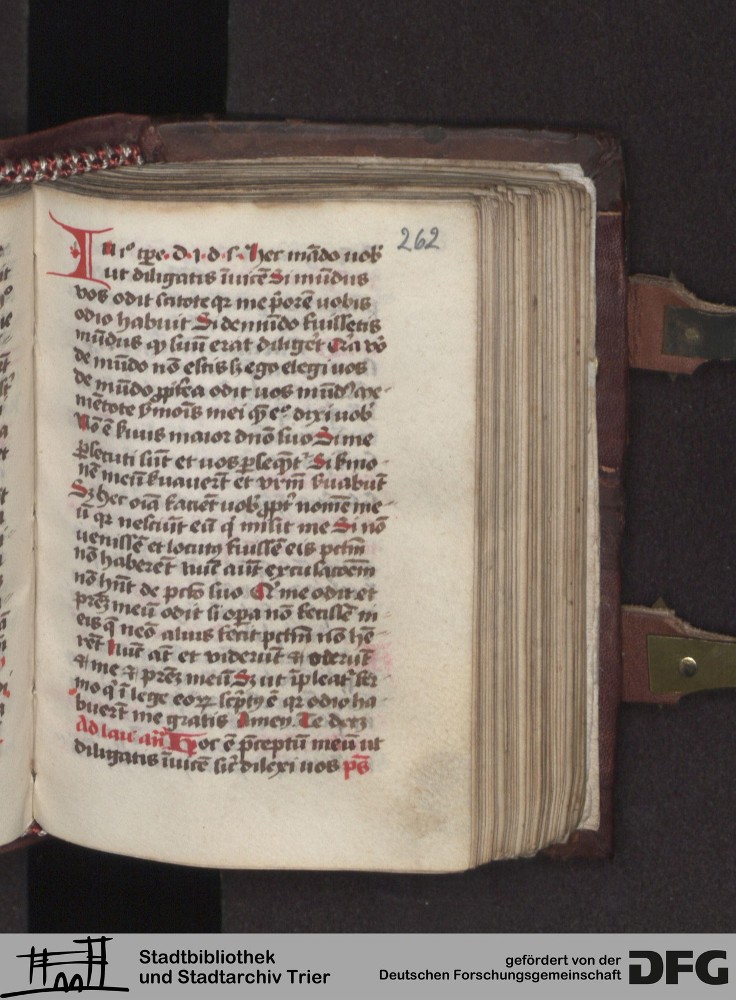 262
In i° tpe. d. i. d. s. Hec mādo uob̄
ut diligatis īuicē Si mūdus
vos odit scitote qr me p̄orē uobis
odio habuit Si de mūdo fuissetis
mūdus qđ suū erat diliget Qr̄a vō
de mūdo nō estis sꝫ ego elegi uos
de mūdo ꝓpt̄ea odit uos mūdꝰ Me
mētote s̄mōis mei q̄ e° dixi uob̄
Nō ē s̄uus maior dnō suo Si me
ꝑsecuti sūt et uos ꝑseqn̄t Si s̄mo
nē meū s̄uauer̄t et vr̄m s̄uabūt
Sꝫ hec oīa faciēt uob̄ ꝓpt̄ nomē me
ū qr nesciūt eū q̄ misit me Si nō
uenissē et locutꝰ fuissē eis pctm̄
nō haberēt nūc aūt excusacōem
nō hn̄t de pctō suo Qī me odit et
pr̄eꝫ meū odit si opa nō fecissē in
eis q̄ neō alius fecit pctm̄ nō hē
rēt Nūc at̄ et viderūt ⁊ oderūt
⁊ me ⁊ pr̄eꝫ meū Sꝫ ut īpleat̄ ser
mo q̄ ī lege eoꝝ sc̄ptꝰ ē qr odio ha
buer̄t me gratis Amen. Te dexꝫ
Ad lau an̄ Hoc ē p̄ceptū meū ut
diligatis īuicē sic̄ dilexi uos ps̄
Stadtbibliothek
und Stadtarchiv Trier
gefördert von der
Deutschen Forschungsgemeinschaft
DFG